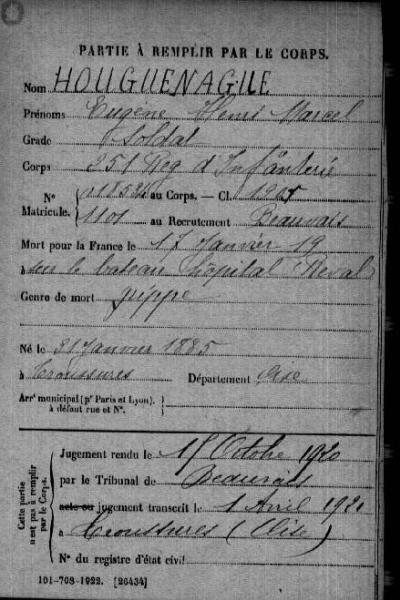 PARTIE À REMPLIR PAR LE CORPS.
Nom HOUGUENAGUE
Prénoms Eugène Henri Marcel
Grade Soldat
Corps 251 Reg d'Infanterie
N° 011852 au Corps. — Cl. 1905
Matricule. 1101 au Recrutement Beauvais
Mort pour la France le 17 Janvier 19
à sur le bateau hôpital Reval
Genre de mort grippe
Né le 31 Janvier 1885
à Troussures Département Oise
Arrt municipal (pr Paris et Lyon).
à défaut rue et N°.
Cette partie n'est pas à remplir par le Corps.
Jugement rendu le 15 Octobre 1920
par le Tribunal de Beauvais
acte ou jugement transcrit le 1 Avril 1921
à Troussures (Oise)
N° du registre d'état civil
101-708-1922. [26434]